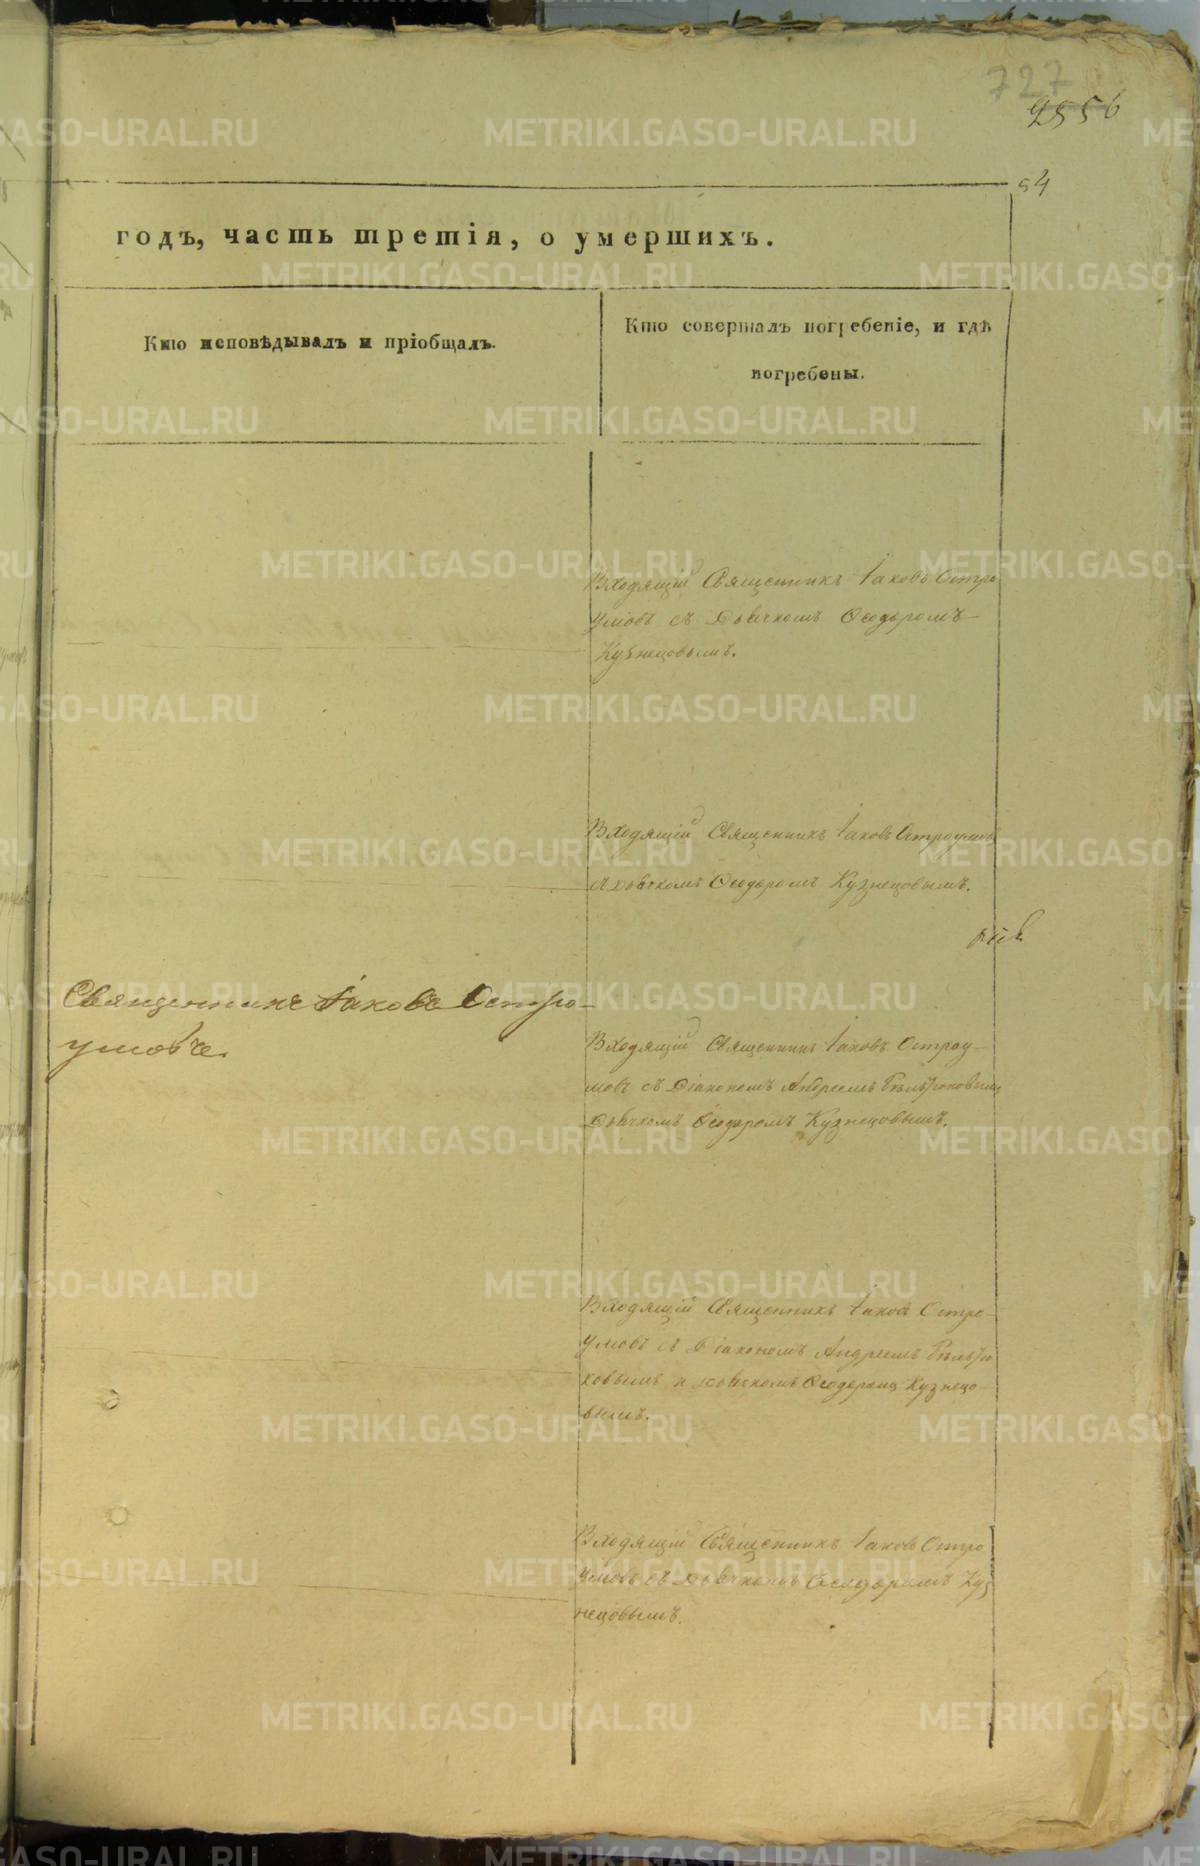 727
2556
54
годъ, часть третія, о умершихъ.
Кто исповѣдывалъ и пріобщалъ.
Кто совершалъ погребеніе, и гдѣ
погребены.
Входящій Священникъ Іаковъ Остро
умовъ съ Дьячкомъ Ѳеодоромъ
Кузнецовымъ.
Входящій Священникъ Іаковъ Остроумовъ
съ дьячкомъ Ѳеодоромъ Кузнецовымъ.
Священникъ Іаковъ Остро-
умовъ.
Входящій Священникъ Іаковъ Остроу-
мовъ съ Діакономъ Андреемъ
Дьячкомъ Ѳеодоромъ Кузнецовымъ.
Входящій Священникъ Іаковъ Остро-
умовъ съ Діакономъ Андреемъ
ковымъ и дьячкомъ Ѳеодоромъ Кузнецо-
вымъ.
Входящій Священникъ Іаковъ Остро
умовъ съ Дьячкомъ Ѳеодоромъ Куз
нецовымъ.
METRIKI.GASO-URAL.RU